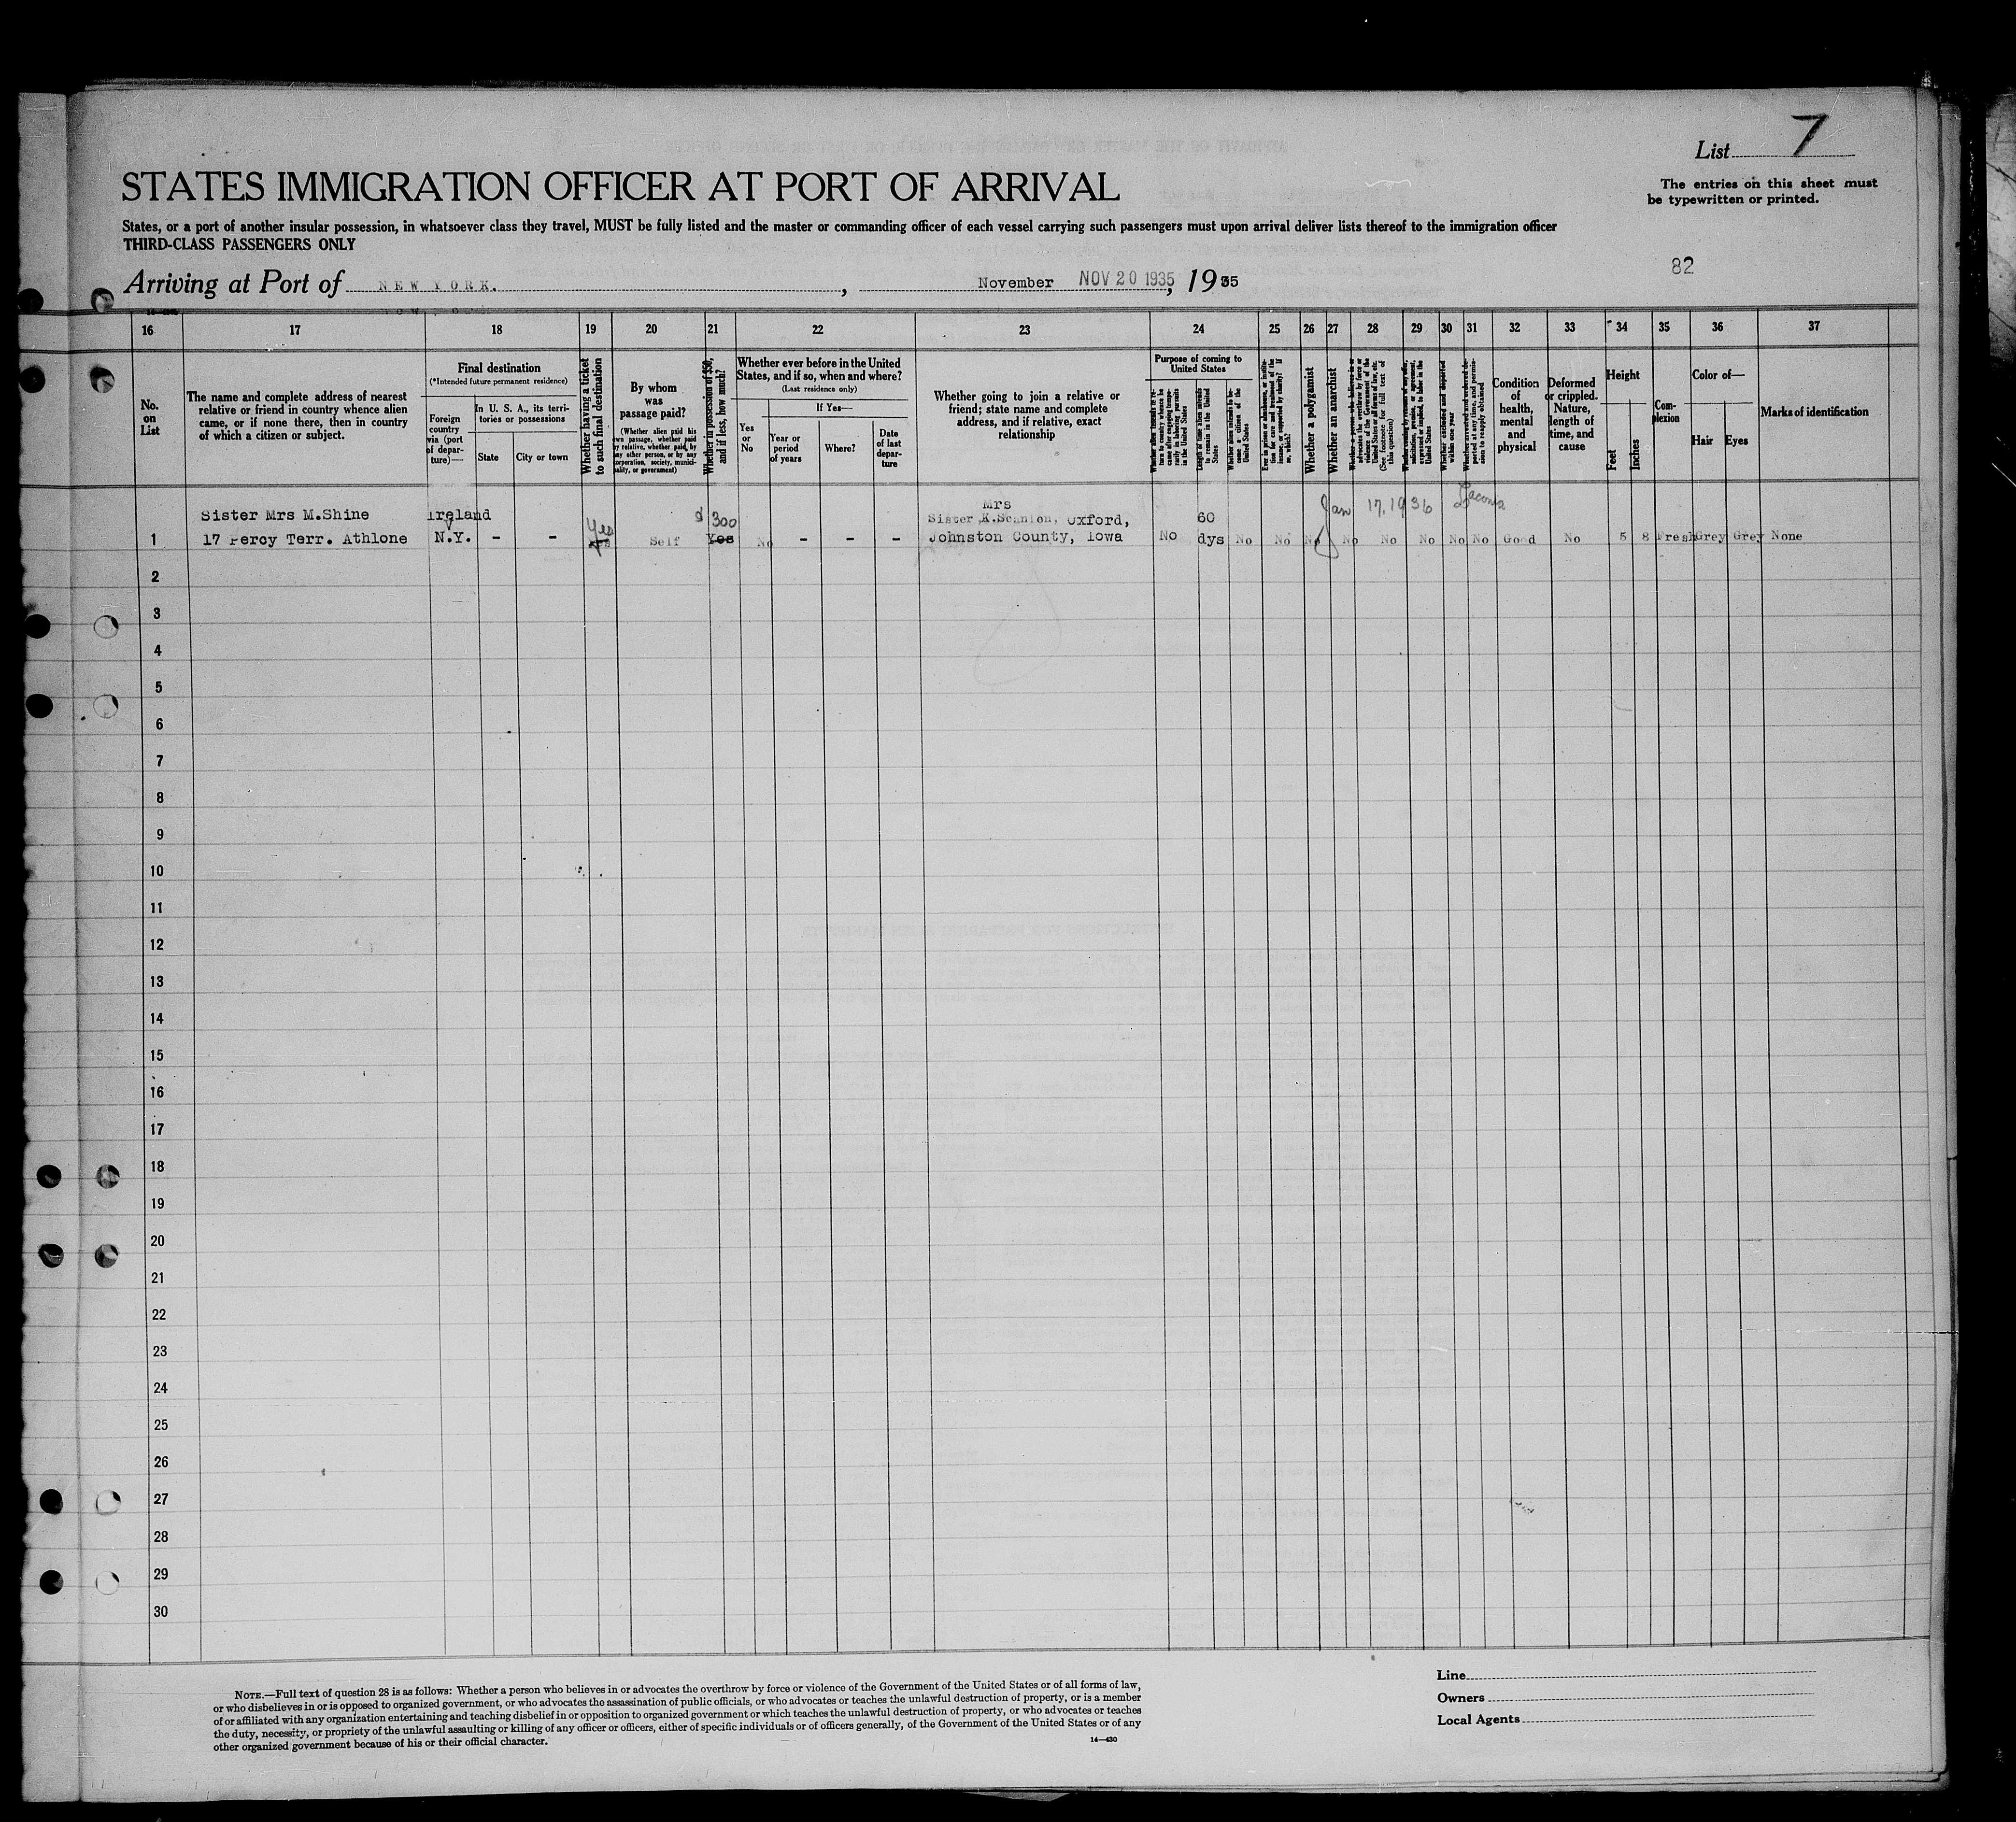 List 7
The entries on this sheet must
be typewritten or printed.
STATES IMMIGRATION OFFICER AT PORT OF ARRIVAL
States, or a port of another insular possession, in whatsoever class they travel, MUST be fully listed and the master or commanding officer of each vessel carrying such passengers must upon arrival deliver lists thereof to the immigration officer
THIRD-CLASS PASSENGERS ONLY
82
Arriving at Port of NEW YORK. , November NOV 20 1935, 1935
16 17 18 19 20 21 22 23 24 25 26 27 28 29 30 31 32 33 34 35 36 37
No.
on
List
The name and complete address of nearest
relative or friend in country whence alien
came, or if none there, then in country
of which a citizen or subject.
Final destination
(*Intended future permanent residence)
Foreign
country
via (port
of depar-
ture)—
In U. S. A., its terri-
tories or possessions
State
City or town
Whether having a ticket
to such final destination
By whom
was
passage paid?
(Whether alien paid his
own passage, whether paid
by relative, whether paid by
any other person, or by any
corporation, society, munici-
pality, or government)
Whether in possession of $50,
and if less, how much?
Whether ever before in the United
States, and if so, when and where?
(Last residence only)
Yes
or
No
If Yes—
Year or
period
of years
Where?
Date
of last
depar-
ture
Whether going to join a relative or
friend; state name and complete
address, and if relative, exact
relationship
Purpose of coming to
United States
Length of time alien intends
to remain in the United
States
Whether alien intends to be-
come a citizen of the
United States
Whether a polygamist
Whether an anarchist
(See footnote for full text of
this question)
Condition
of
health,
mental
and
physical
Deformed
or crippled.
Nature,
length of
time, and
cause
Height
Feet
Inches
Com-
plexion
Color of—
Hair
Eyes
Marks of identification
Sister Mrs M.Shine Ireland Yes $ 300 Mrs 60 Jan 17, 1936
Sister K.Scanlon, Oxford,
1 17 Percy Terr. Athlone N.Y. - - Yes Self Yes No - - - Johnston County, Iowa No dys No No No No No No No No Good No 5 8 Fresh Grey Grey None
2
3
4
5
6
7
8
9
10
11
12
13
14
15
16
17
18
19
20
21
22
23
24
25
26
27
28
29
30
NOTE.—Full text of question 28 is as follows: Whether a person who believes in or advocates the overthrow by force or violence of the Government of the United States or of all forms of law,
or who disbelieves in or is opposed to organized government, or who advocates the assassination of public officials, or who advocates or teaches the unlawful destruction of property, or is a member
of or affiliated with any organization entertaining and teaching disbelief in or opposition to organized government or which teaches the unlawful destruction of property, or who advocates or teaches
the duty, necessity, or propriety of the unlawful assaulting or killing of any officer or officers, either of specific individuals or of officers generally, of the Government of the United States or of any
other organized government because of his or their official character.
14—430
Line
Owners
Local Agents